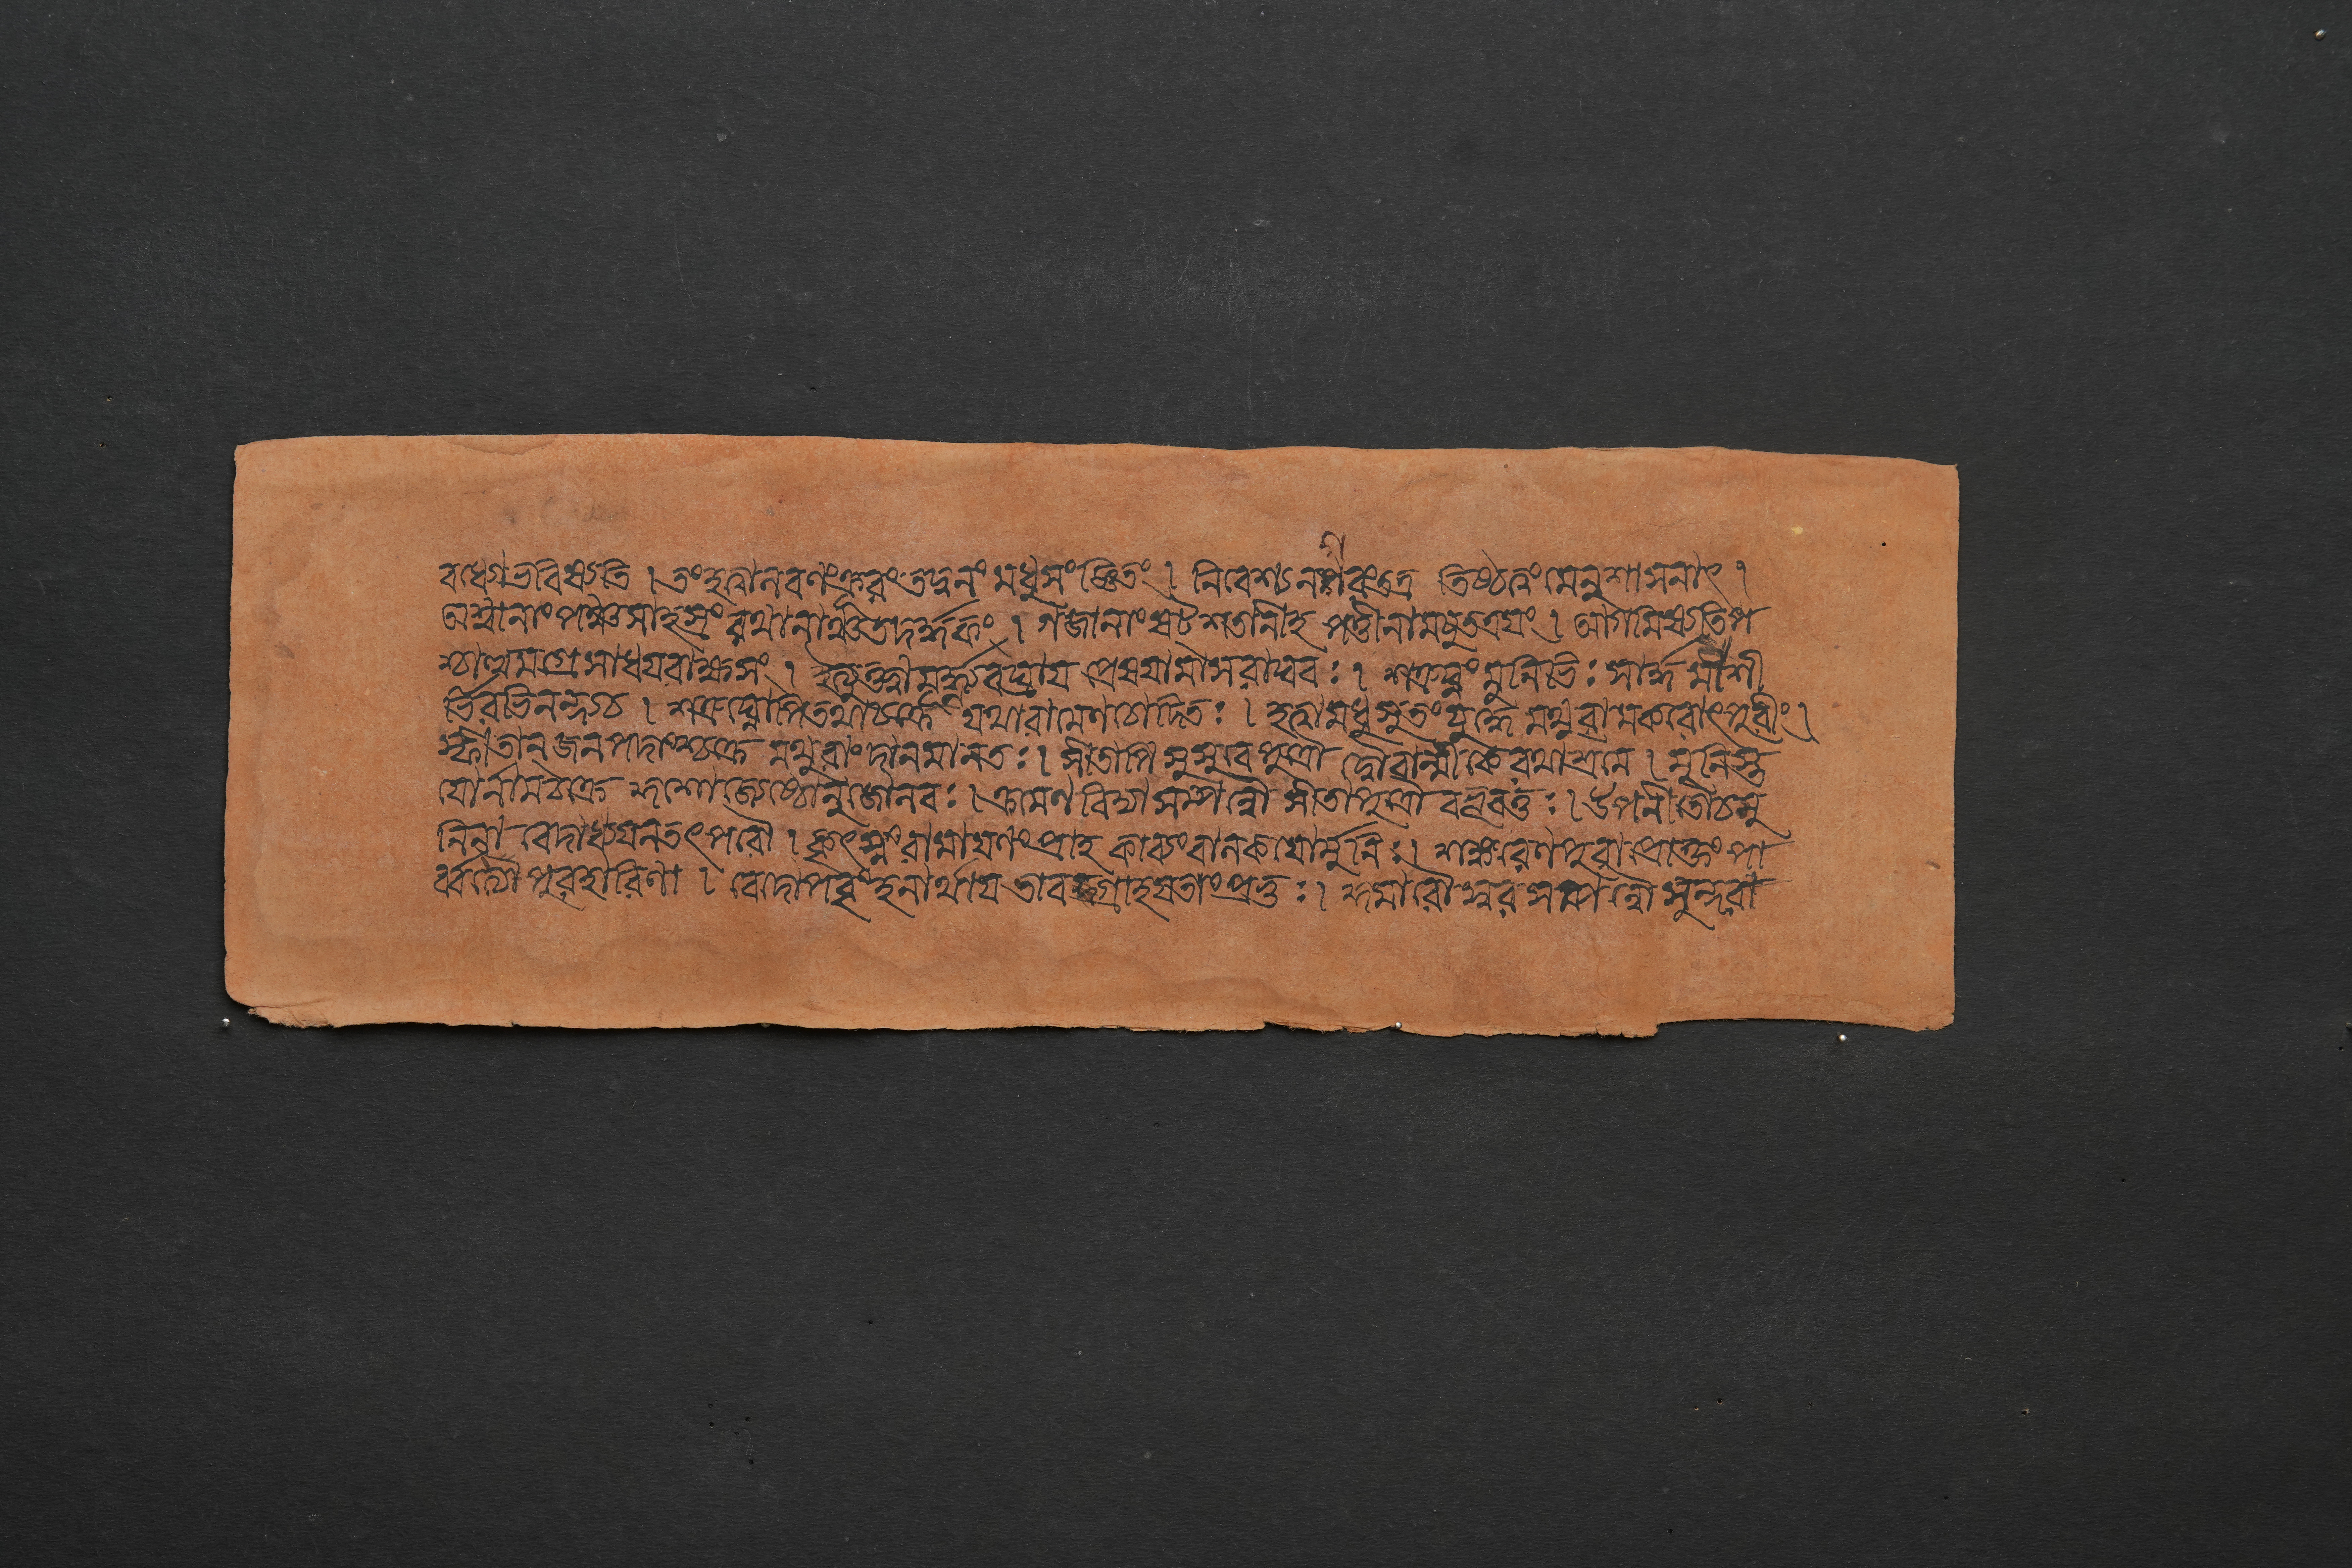 বধ্যোভবিষ্যতি । তংহত্বালবণংক্রূরং তদ্বনং মধুসংজ্ঞিতং । নিবেশ্য নগরংতত্র তিষ্ঠত্বং মেনুশাসনাৎ ।
অশ্বানাং পঞ্চসাহস্রং রথানাঞ্চতদর্দ্ধকং । গজানাং ষট্শতানীহ পত্তীনামযুতত্রয়ং । আগমিষ্যতিপ
শ্চাত্ত্বমগ্রেসাধযরাক্ষসং । ইত্যুক্ত্বামূর্দ্ধ্ন্যবঘ্রায প্রেষযামাসরাঘবঃ । শত্রুঘ্নং মুনিভিঃ সার্দ্ধমাশী
র্ভিরভিনন্দ্যচ । শত্রুঘ্নোপিতথাচক্রে যথারামেণচোদিতঃ । হত্বামধুসুতংযুদ্ধে মথুরামকরোৎপুরীং ।
স্ফীতান্ জনপদাংশ্চক্রে মথুরাং দানমানতঃ । সীতাপি সুসুবে পুত্রৌ দ্বৌবাল্মীকেরথাশ্রমে । মুনিস্ত
যোর্নামচক্রে কুশোজ্যেষ্ঠোনুজোলবঃ । ক্রমেণ বিদ্যাসম্পন্নৌ সীতাপুত্রৌ বভূবতুঃ । উপনীতৌচমু
নিনা বেদাধ্যযনতৎপরৌ । কৃৎস্নং রামাযণংপ্রাহ কাব্যংবালকযোর্মুনিঃ । শঙ্করেণপুরাপ্রোক্তং পা
র্ব্বত্যৈ পুরহারিণা । বেদোপবৃংহনার্থায তাবগ্রাহযতাংপ্রভুঃ । কুমারৌস্বরসম্পন্নৌ সুন্দরা